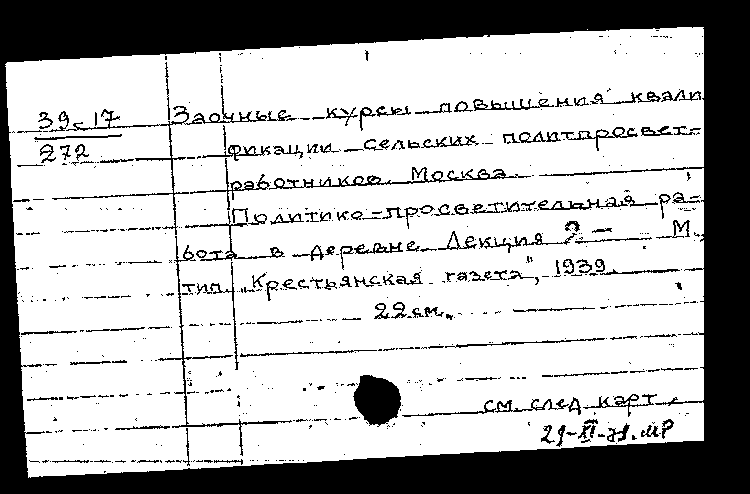 39-17
272
Заочные курсы повышения квали
фикации сельских политпросвет-
работников. Москва.
Политико-просветительная ра-
бота в деревне. Лекция 2- М.,
тип. "Крестьянская газета", 1939.
22 см.
см. след. карт.
29-XI-71. МР